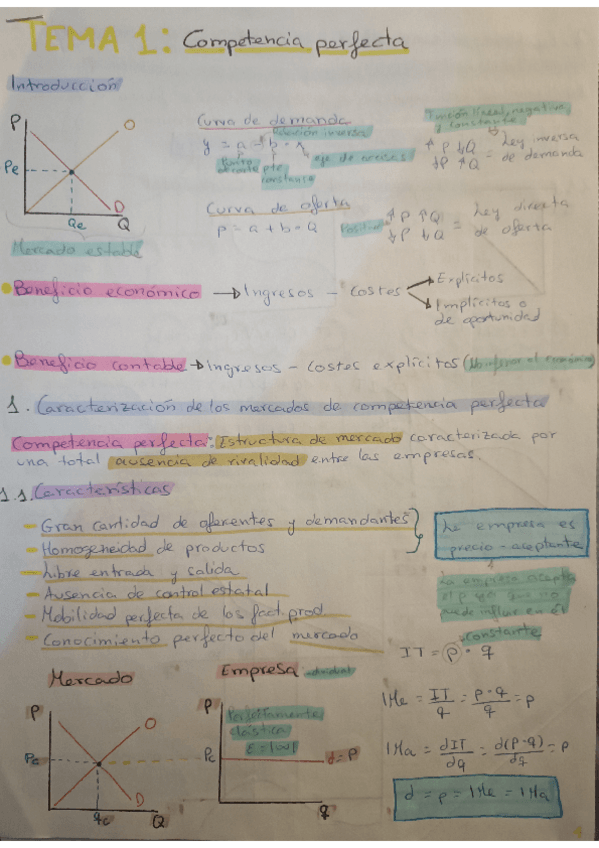 TEMA 1: Competencia perfecta
Introducción
P
O
Pe
D
Qe
Q
Mercado estable
Curva de demanda
relación inversa
y = a - b · x
eje de abcisas
pte
constante
Función lineal, negativa
y constante
↑ P ↓ Q
↓ P ↑ Q
= Ley inversa
de demanda
Curva de oferta
p = a + b · Q
Positiva
↑ P ↑ Q
↓ P ↓ Q
= Ley directa
de oferta
Beneficio económico → Ingresos - costes
Explícitos
Implícitos o
de oportunidad
Beneficio contable → Ingresos - costes explícitos
1. Caracterización de los mercados de competencia perfecta
Competencia perfecta: Estructura de mercado caracterizada por
una total ausencia de rivalidad entre las empresas.
1.1. Características
- Gran cantidad de oferentes y demandantes
- Homogeneidad de productos
- Libre entrada y salida
- Ausencia de control estatal
- Mobilidad perfecta de los fact. prod
- Conocimiento perfecto del mercado
La empresa es
precio-aceptante
La empresa acepta
el p ya que no
puede influir en él
constante
IT = p · q
Mercado
P
O
Pe
D
qe
Q
Empresa individual
P
Perfectamente
elástica
ε = |∞|
Pe
d = P
q
IMe = IT/q = p·q/q = p
IMa = dIT/dq = d(p·q)/dq = p
d = p = IMe = IMa